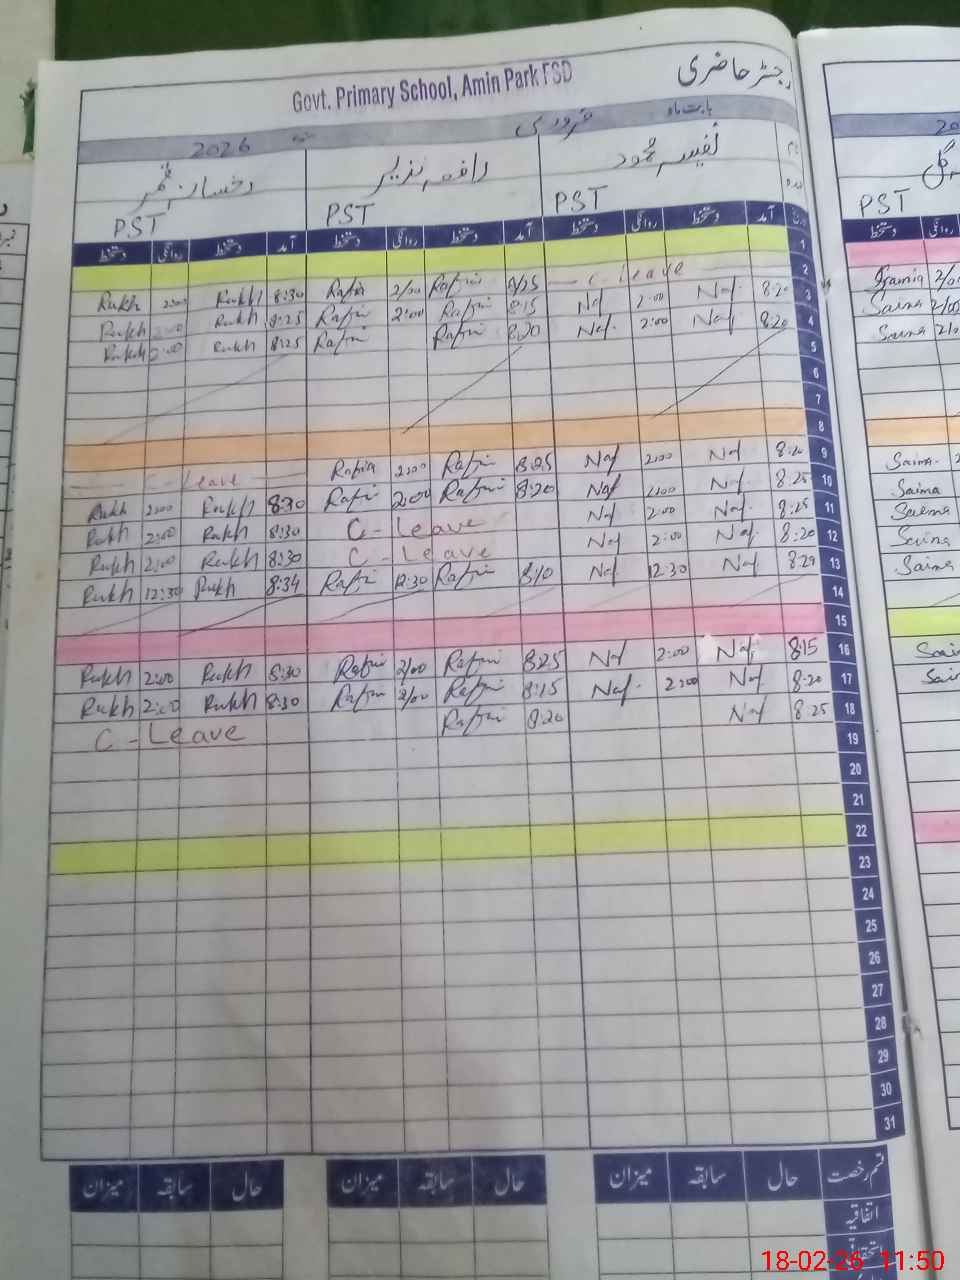 Govt. Primary School, Amin Park FSD
رجسٹر حاضری
بابت ماہ فروری 2026
نام نفیسہ محمود رافعہ نذیر
PST PST PST PST
تاریخ آمد دستخط روانگی دستخط آمد دستخط روانگی دستخط آمد دستخط روانگی دستخط
1
Rukh 2:00 Rukh 8:30 Rafia 2/00 Rafia 8/25 - C - Leave 2
Rukh 2:00 Rukh 8:25 Rafia 2:00 Rafia 8:15 Naf 2:00 Naf 8:20 3
Rukh 2:00 Rukh 8:25 Rafia Rafia 8:20 Naf 2:00 Naf 8:20 4
5
6
7
8
C - Leave Rafia 2:00 Rafia 8:25 Naf 2:00 Naf 8:20 9
Rukh 2:00 Rukh 8:30 Rafia 2:00 Rafia 8:20 Naf 2:00 Naf 8:25 10
Rukh 2:00 Rukh 8:30 C - Leave Naf 2:00 Naf 8:25 11
Rukh 2:00 Rukh 8:30 C - Leave Naf 2:00 Naf 8:20 12
Rukh 12:30 Rukh 8:34 Rafia 12:30 Rafia 8:10 Naf 12:30 Naf 8:29 13
14
15
Rukh 2:00 Rukh 8:30 Rafia 2/00 Rafia 8:25 Naf 2:00 Naf 8:15 16
Rukh 2:00 Rukh 8:30 Rafia 2/00 Rafia 8:15 Naf 2:00 Naf 8:20 17
C - Leave Rafia 8:20 Naf 8:25 18
19
20
21
22
23
24
25
26
27
28
29
30
31
قسم رخصت حال سابقہ میزان حال سابقہ میزان حال سابقہ میزان
اتفاقیہ
استحقاقی
دستخط
Saima
Saima
Saima
Saima
Saima
Saima
Saima
18-02-26 11:50